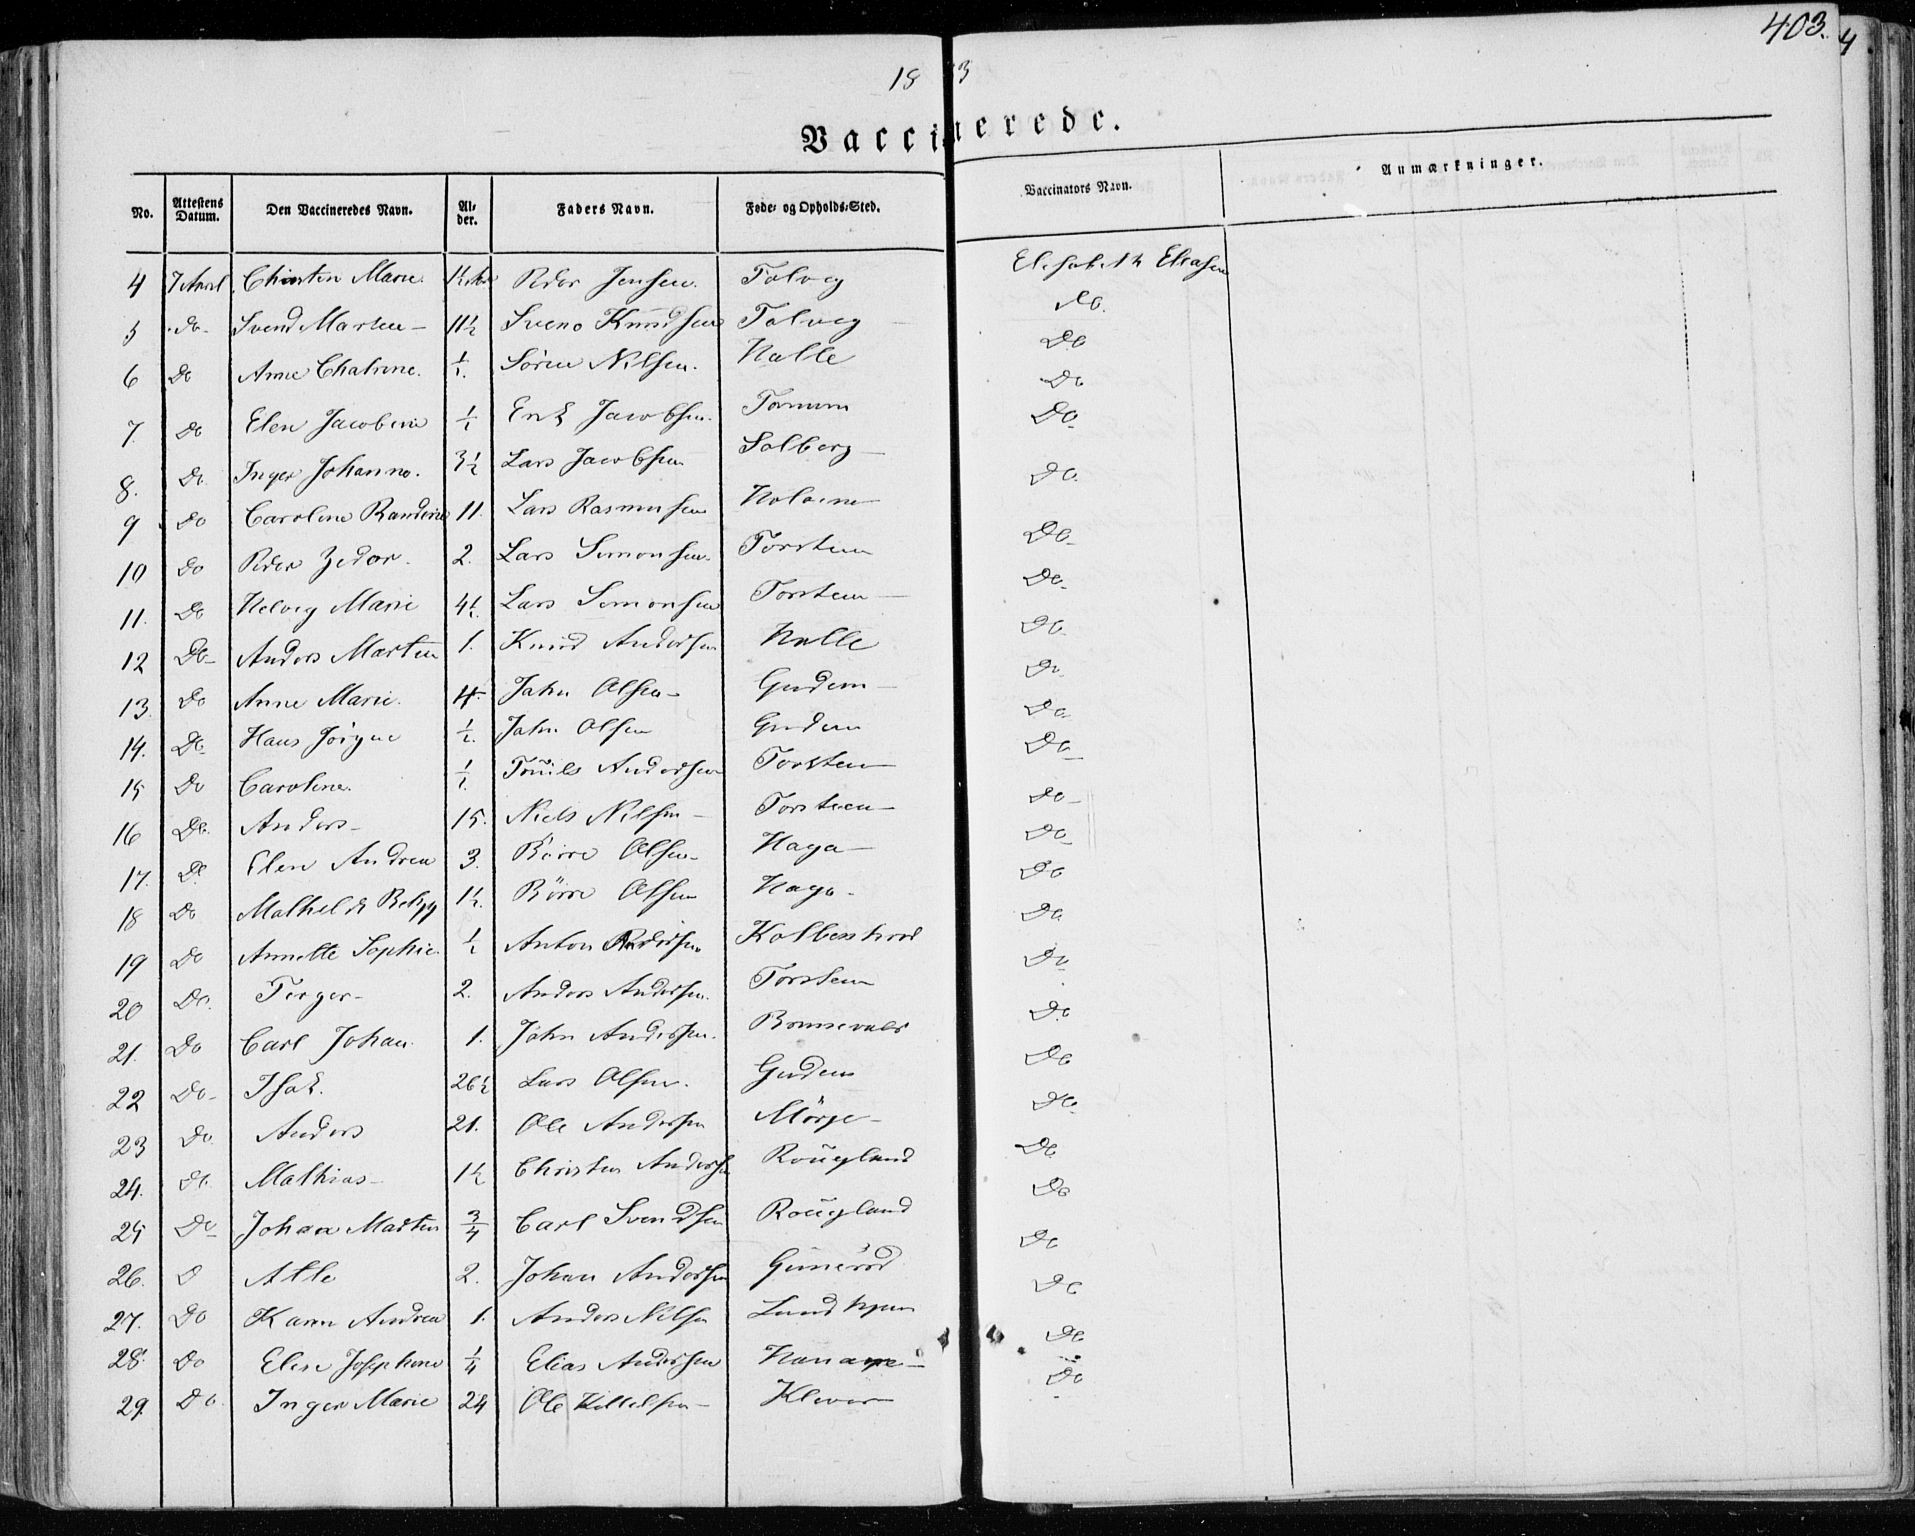 403.
4
18 3
Vaccinerede.
No. Attestens Datum. Den Vaccineredes Navn. Al-der. Faders Navn. Føde- og Opholds-Sted. Vaccinators Navn. Anmærkninger.
4 7 April Marie. Peder Jensen. Tolveg Elisabeth Eliasen
5 Do Svend Martin 11½ Svend Knudsen Tolveg Do.
6 Do Anne Chatrine. 1/1. Sören Nilsen. Halle Do
7. Do Elen Jacobine 1/1 Erik Jacobsen. Do
8. Do Inger Johanne. 3½ Lars Jacobsen Solberg Do
9 Do Caroline Randine 11. Lars Rasmusen Do.
10 Do Peder 2. Lars Simonsen. Torsteen Do
11. Do Helvig Marie 4½ Lars Simonsen Torsteen Do
12 Do Anders Martin 1. Knud Andersen Halle Do
13. Do Anne Marie. 4. Jahn Olsen Gudem Do
14. Do Hans Jörgen ½. Jahn Olsen Gudem Do
15 Do Caroline. 1/1. Andersen Torsteen Do
16 Do. Anders 15. Niels Nilsen Torsteen Do
17. Do Elen Andrea 3. Börre Olsen Haga Do
18 Do Mathilde Betzy 1½. Börre Olsen Haga Do
19 Do Annette Sophie ½ Anton Do
20 Do. Terger 2. Anders Andersen. Torsteen Do
21. Do Carl Johan. 1. John Andersen. Do
22 Do Isak. 26½ Lars Olsen. Gudem Do
23 Do Anders 21. Ole Andersen Mörge Do
24. Do Mathias 1½ Christen Andersen Rougland Do
25 Do Johan Martin 3/4 Carl Svendsen Rougland Do
26. D Atle 2. Johan Andersen Guneröd Do
27. Do Karen Andrea 1. Anders Nilsen Do
28. Do Elise Josephine 1/4 Elias Andersen Do
29. Do Inger Marie 24 Ole Kittelsen Klever Do